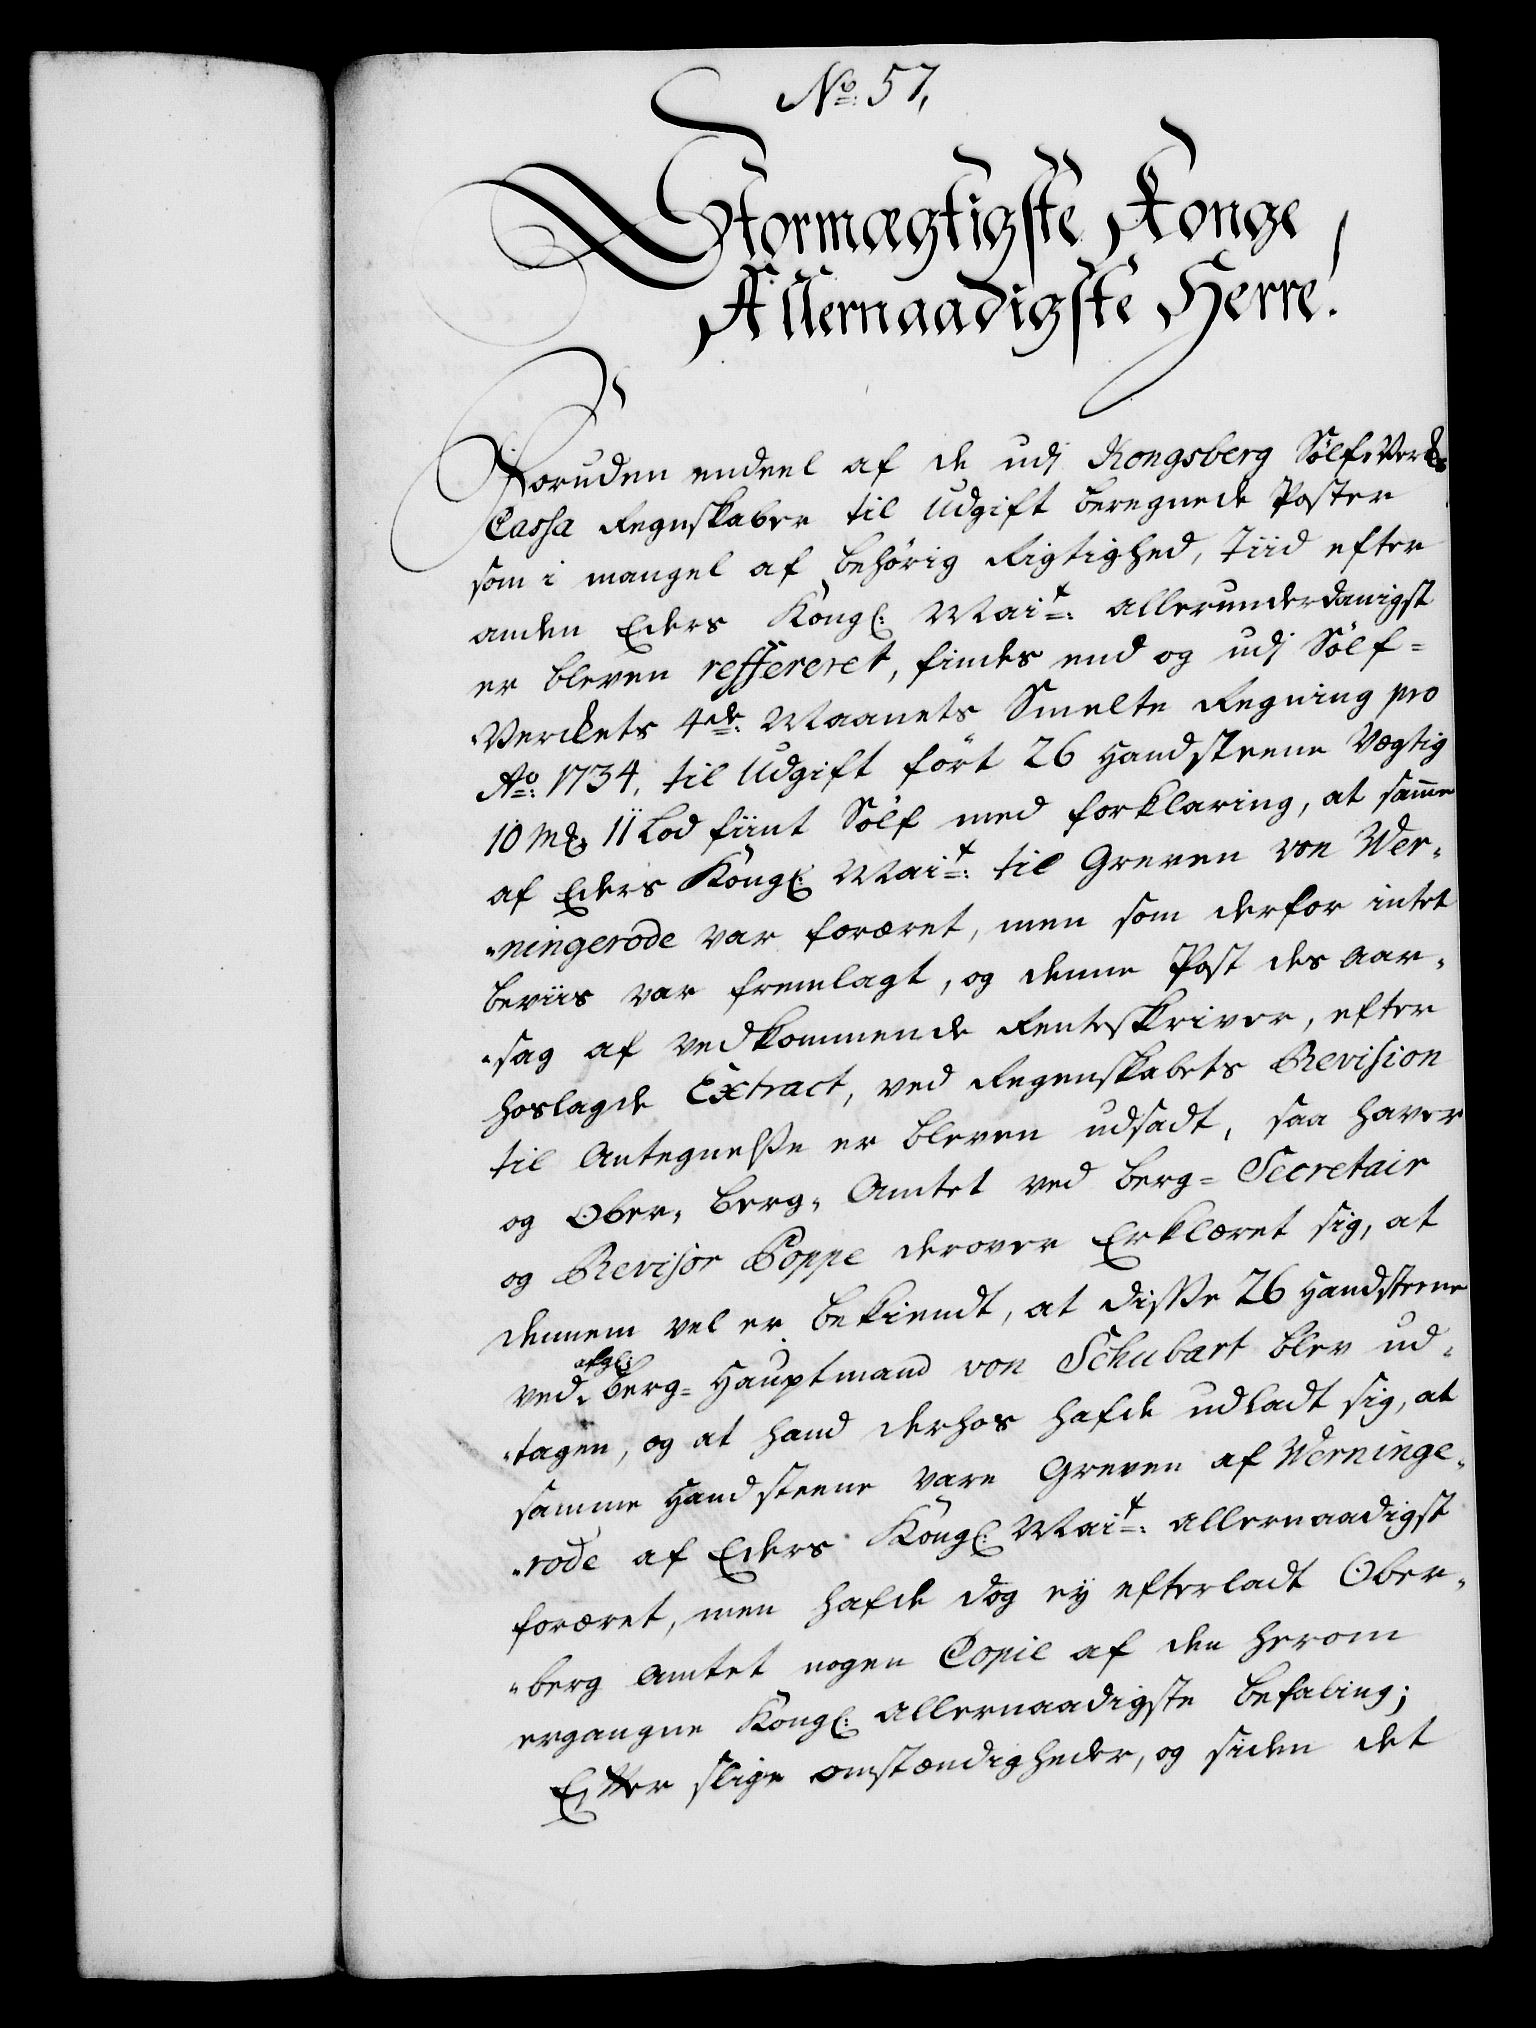 No: 57,
Stormægtigste Konge
Allernaadigste Herre!
Foruden endeel af de udj Kongsberg Sølf-Verks
Cassa Regnskaber til Udgift beregnede Poster
som i mangel af behörig Rigtighed, Tiid efter
anden Eders Kongl: Mait: allerunderdanigst
er bleven reffereret, findes end og udj Sölf=
Verckets 4de: Maanets Smelte Regning pro
Ao: 1734. til Udgift fört 26 Handsteene Vegtig
10 Mk 11 Lod fiint Sölf med forklaring, at samme
af Eders Kongl: Mait: til Greven von Wer„
„ningerode var foræret, men som derfor intet
beviis var fremlagt, og denne Post des Aar„
„sag af vedkommende Renteskriver, efter
hoslagde Extract, ved Regenskabets Revision
til Antegnelsse er bleven udsadt, saa haver
og Ober„ Berg„ Amtet ved Berg= Secretair
og Revisor Poppe derover Erklæret sig, at
dennem vel er bekiendt, at disse 26 Handsteene
ved afgl: Berg= Hauptmand von Schubart blev ud„
„tagen, og at hand derhos hafde udladt sig, at
samme Handsteene vare Greven af Werninge„
„rode af Eders Kongl: Mait: allernaadigst
foræret, men hafde dog ey efterladt Ober„
„berg Amtet nogen Copie af den herom
ergangne Kongl: allernaadigste befaling;
Efter slige omstændigheder, og siden det